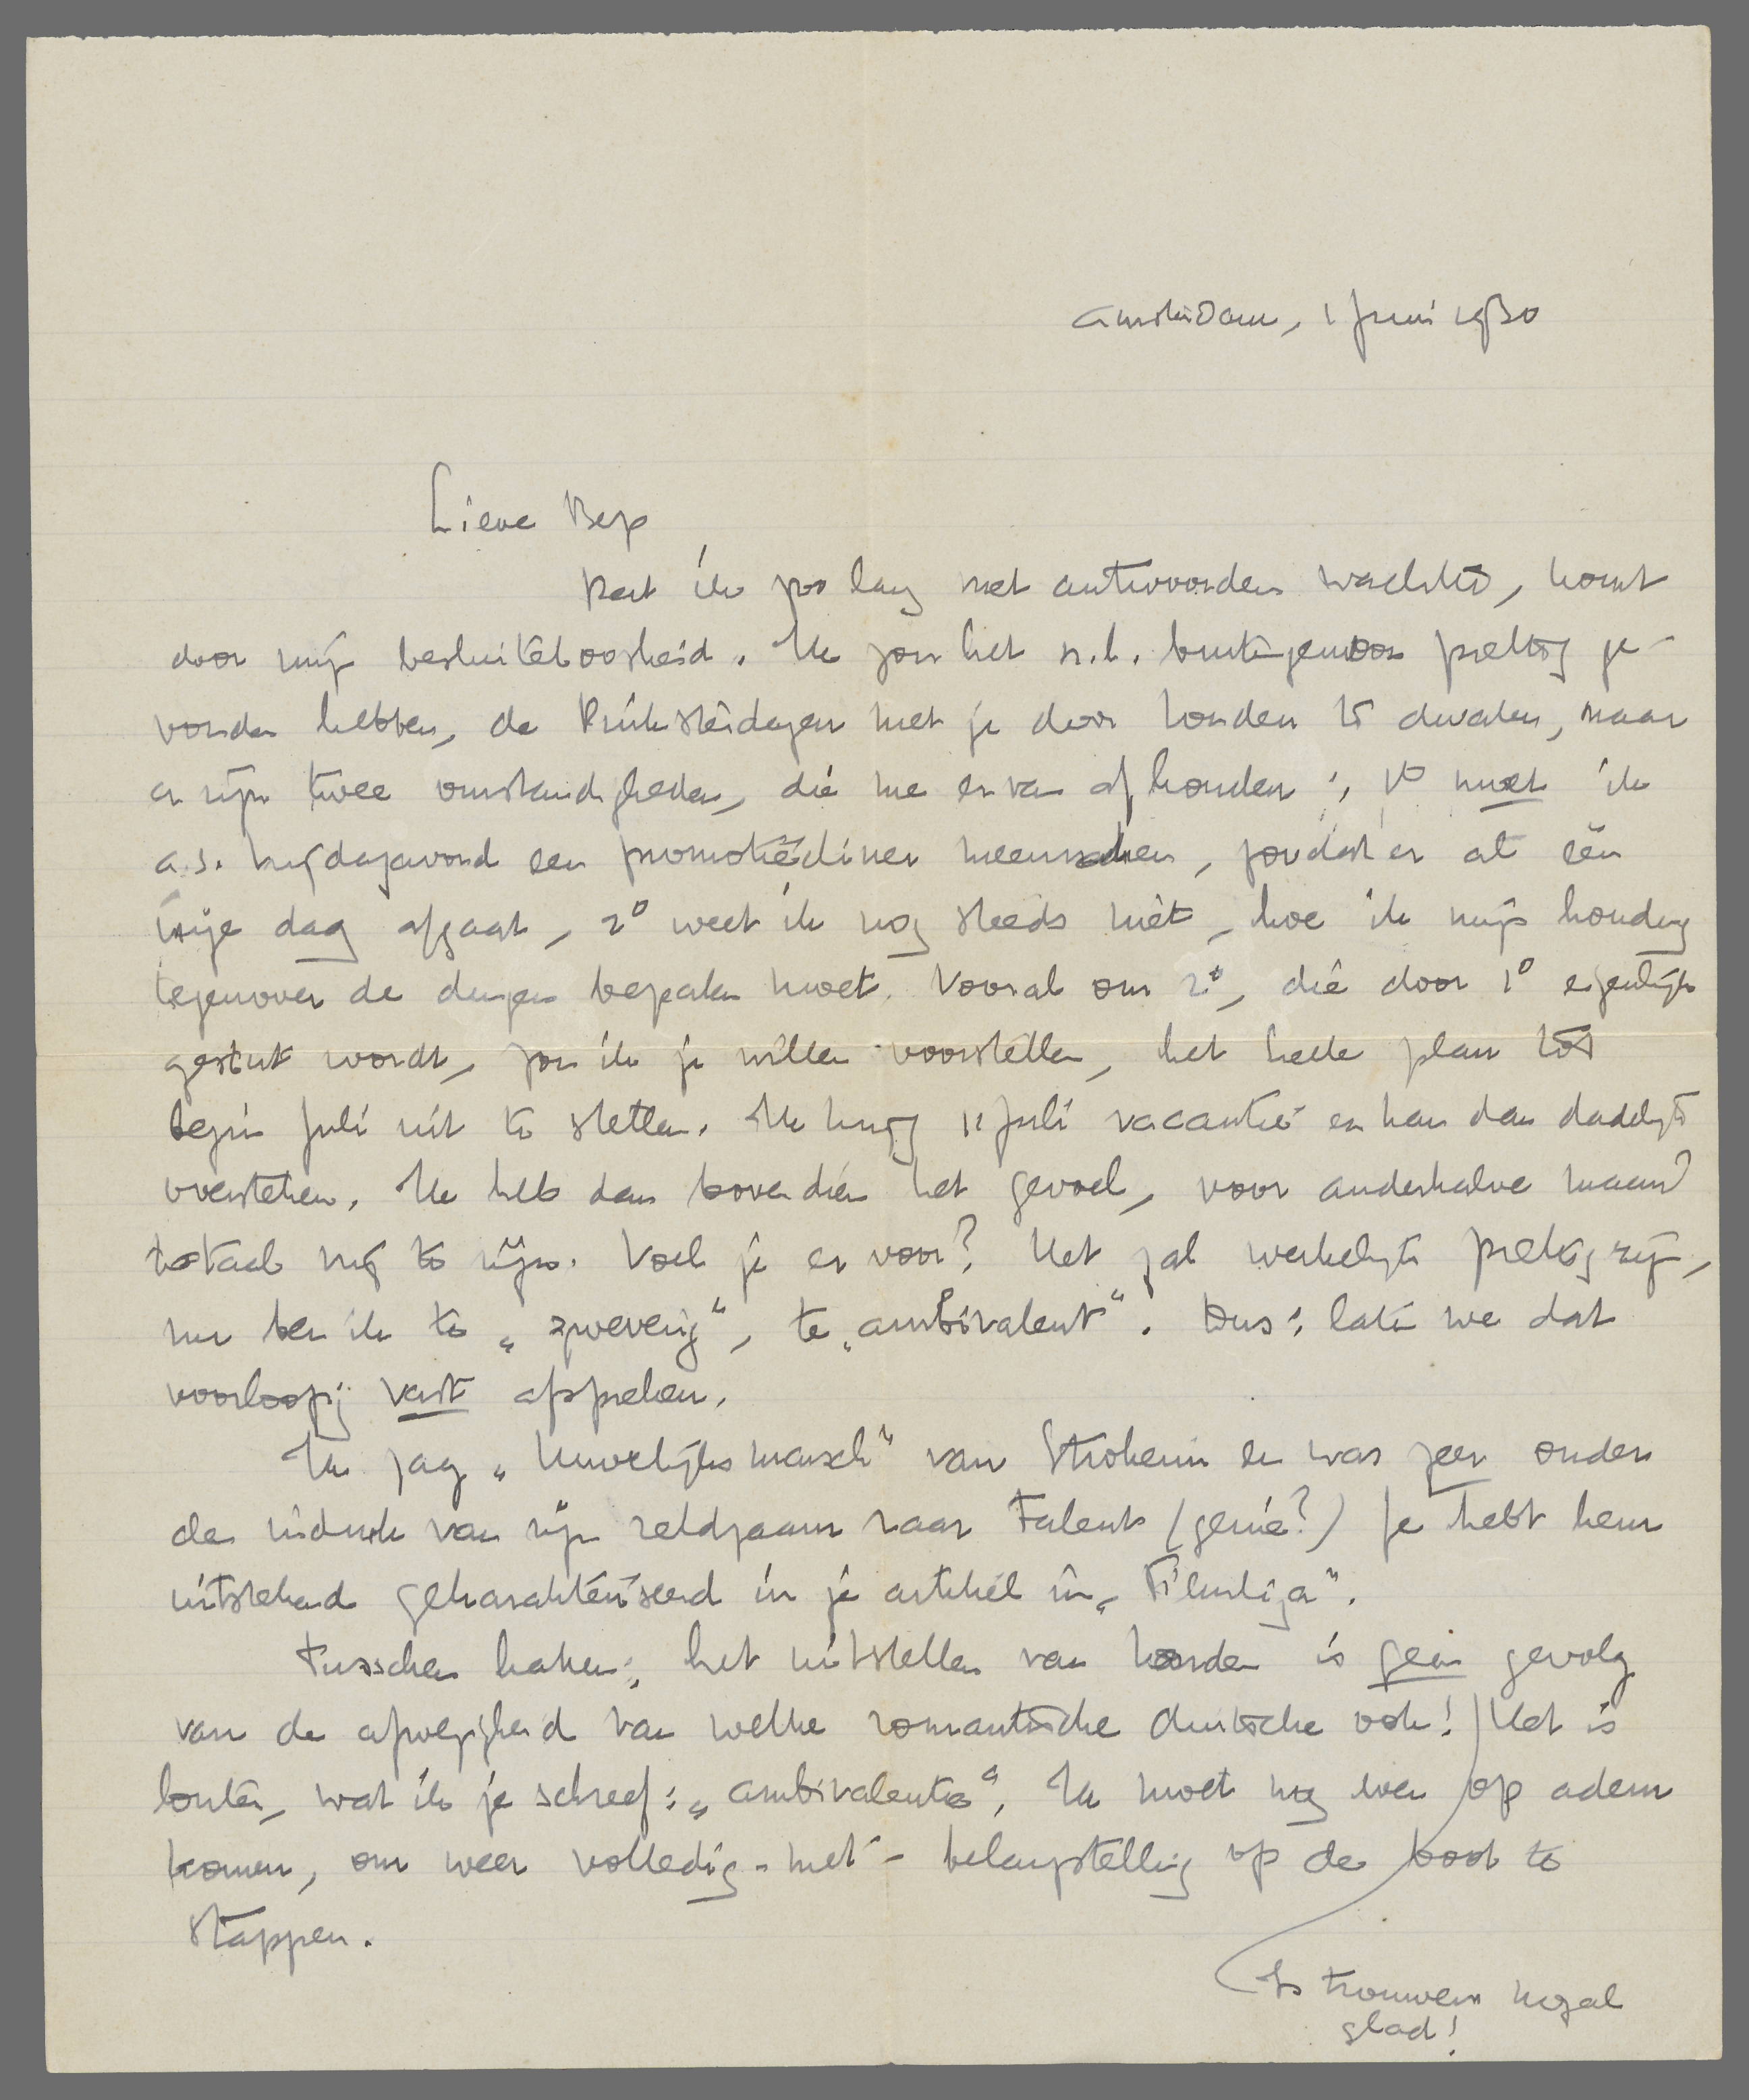 Amsterdam, 1 Juni 1930
Lieve Bep
Dat ik zoo lang met antwoorden wachtte, komt
door mijn besluiteloosheid. Ik zou het n.l. buitengewoon prettig ge-
vonden hebben, de Pinksterdagen met je door Londen te dwalen, maar
er zijn twee omstandigheden, die me ervan afhouden: 1º moet ik
a.s. Vrijdagavond een promotiediner meemaken, zoodat er al één
vrije dag afgaat, 2º weet ik nog steeds niet, hoe ik mijn houding
tegenover de dingen bepalen moet. Vooral om 2º, die door 1º eigenlijk
gestut wordt, zou ik je willen voorstellen, het heele plan tot
begin Juli uit te stellen. Ik krijg 11 Juli vacantie en kan dan dadelijk
oversteken. Ik heb dan bovendien het gevoel, voor anderhalve maand
totaal vrij te zijn. Voel je er voor? Het zal werkelijk prettig zijn,
nu ben ik te „zweverig", te „ambivalent". Dus: laten we dat
voorloopig vast afspreken.
Ik zag „Huwelijksmarsch" van Stroheim en was zeer onder
den indruk van zijn zeldzaam raar talent (genie?) Je hebt hem
uitstekend gekarakteriseerd in je artikel in „Filmliga".
Tusschen haken: het uitstellen van Londen is geen gevolg
van de afwezigheid van welke romantische duitsche ook! Het is
louter, wat ik je schreef: „ambivalentie". Ik moet nog even op adem
komen, om weer volledig-met-belangstelling op de boot te
stappen.
Is trouwens nogal
glad!